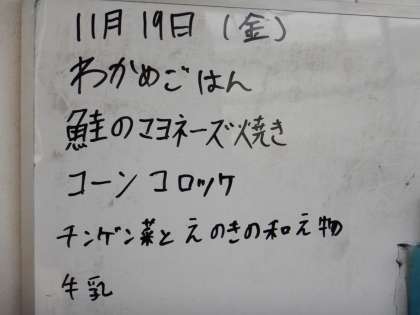 11月19日(金)
わかめごはん
鮭のマヨネーズ焼き
コーンコロッケ
チンゲン菜とえのきの和え物
牛乳